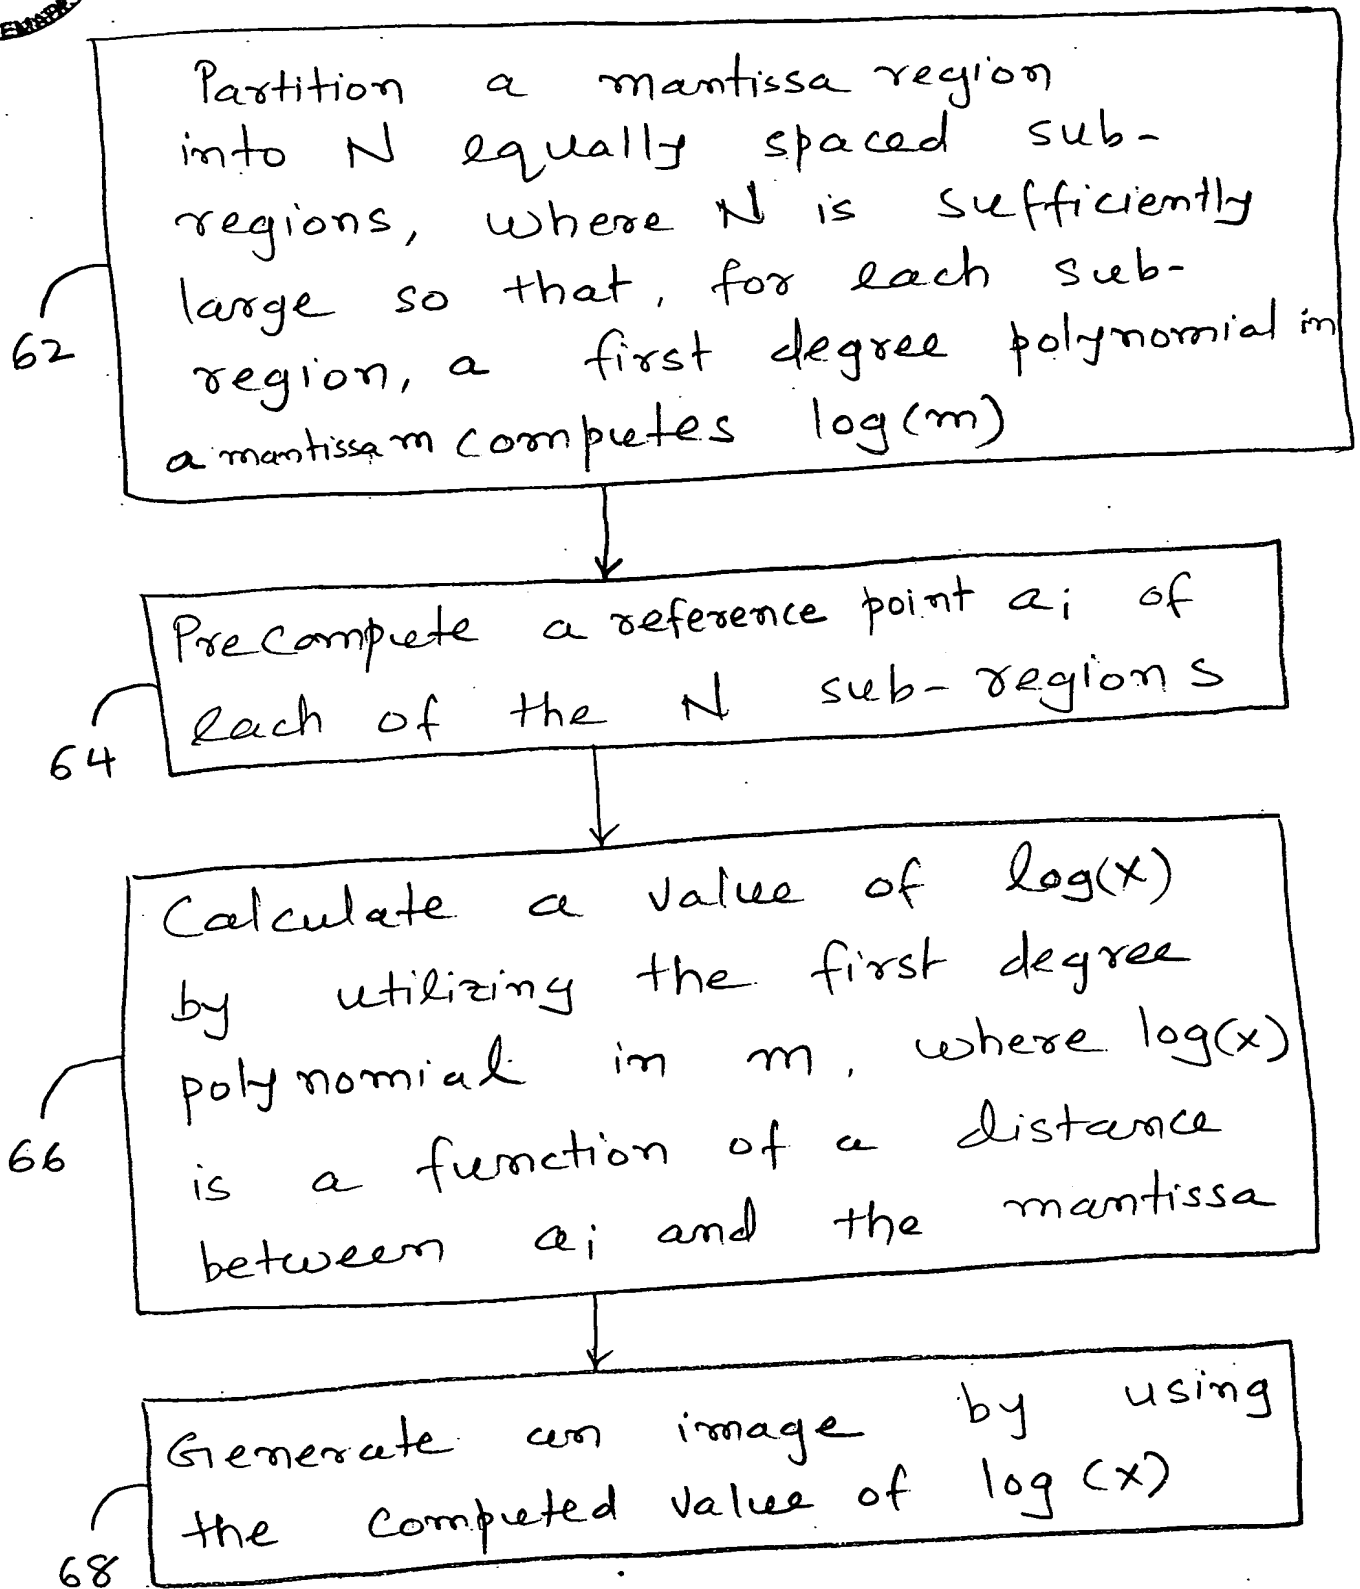 Partition a mantissa region
into N equally spaced sub-
regions, where N is sufficiently
large so that, for each sub-
62
region, a first degree polynomial in
a mantissa m computes log(m)
Precompute a reference point ai of
each of the N sub-regions
64
Calculate a value of log(x)
by utilizing the first degree
polynomial in m, where log(x)
66
is a function of a distance
between ai and the mantissa
Generate an image by using
the computed value of log(x)
68